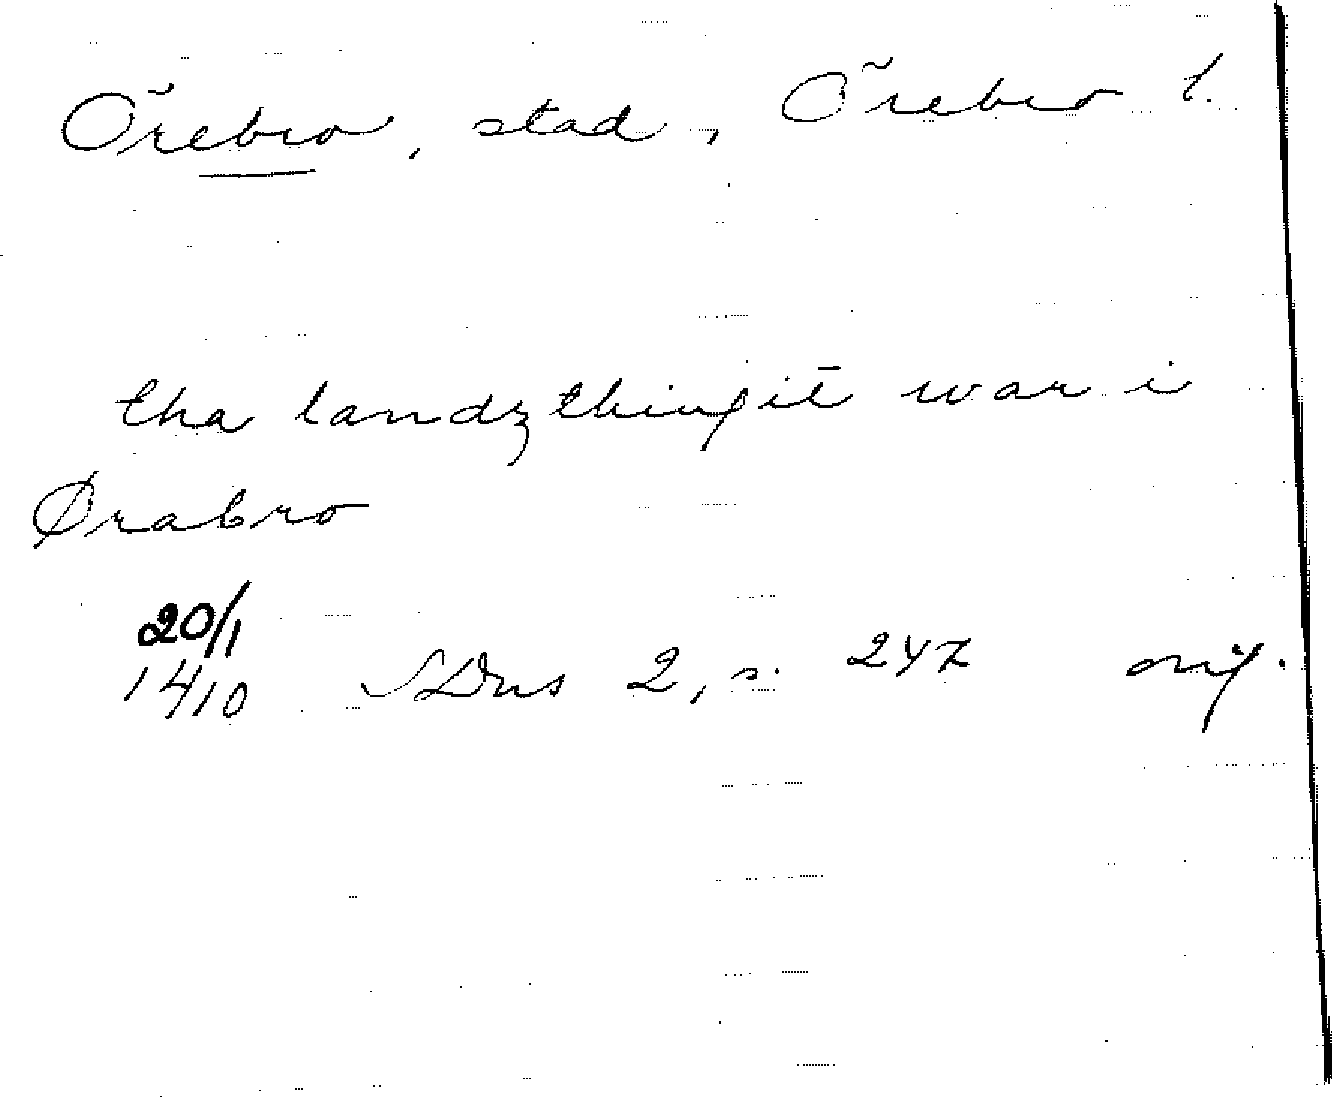 Örebro, stad, Örebro l.
tha landzthingit war i
Ørabro
20/1
1410 SDns 2, s. 247 orig.